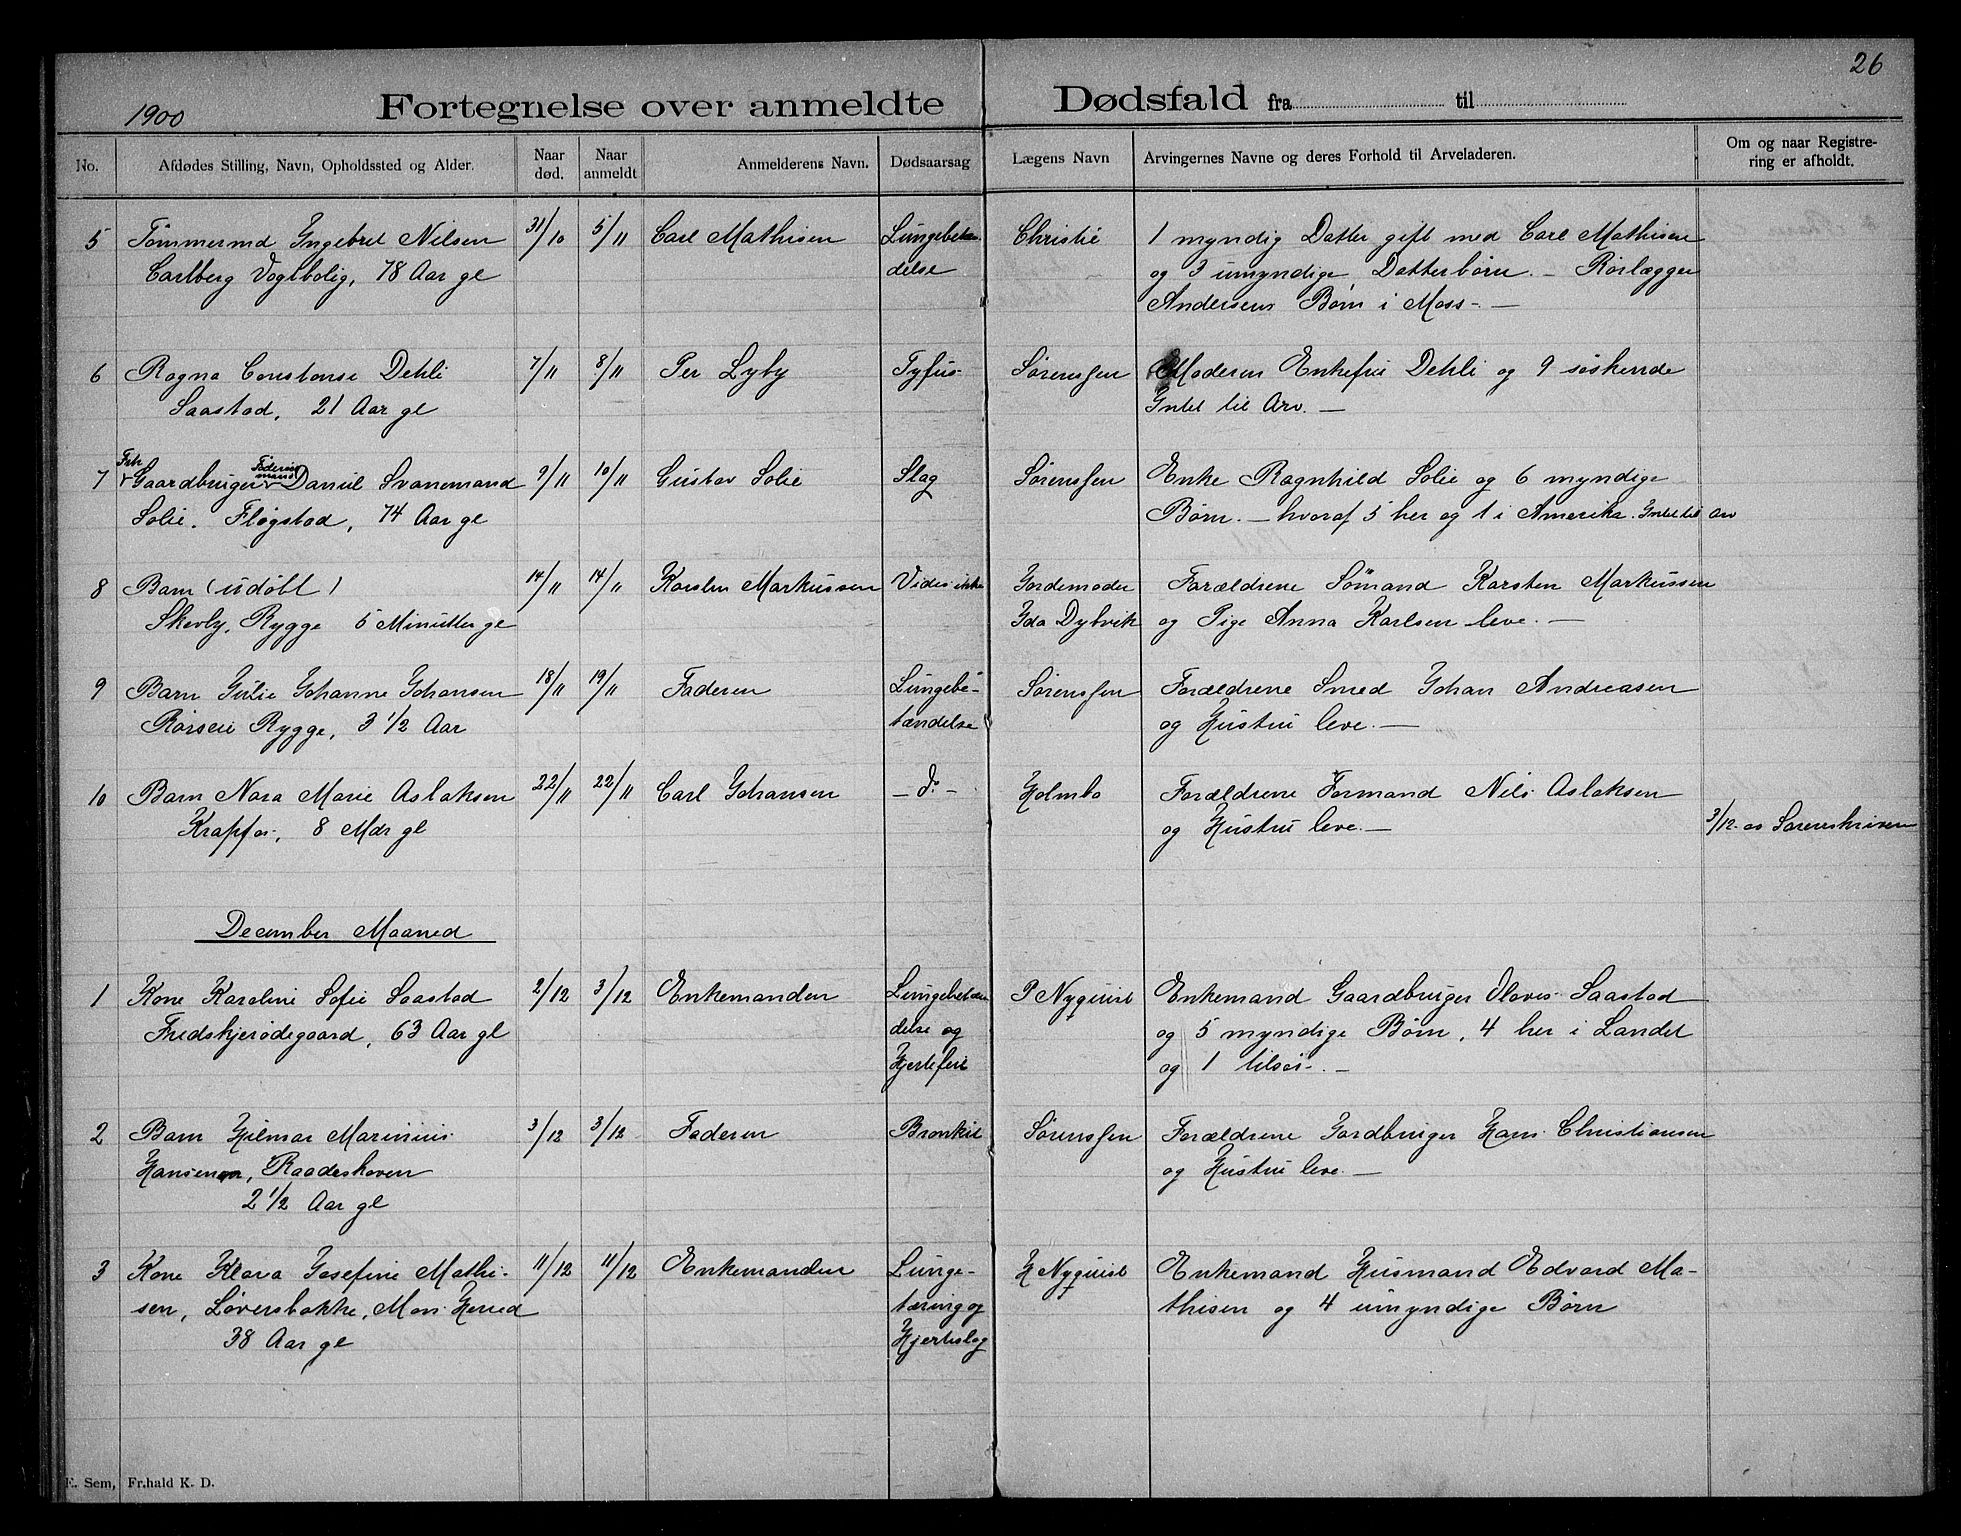 26
1900 Fortegnelse over anmeldte Dødsfald fra til
No. Afdødes Stilling, Navn, Opholdssted og Alder. Naar død. Naar anmeldt Anmelderens Navn. Dødsaarsag Lægens Navn Arvingernes Navne og deres Forhold til Arveladeren. Om og naar Registrering er afholdt.
5 Tømmermd Ingebret Nilsen 31/10 5/11 Carl Mathisen Lungebetæn- Christie 1 myndig Datter gift med Carl Mathisen
Carlberg Vogtbolig, 78 Aar gl delse og 3 umyndige Datterbørn. – Rørlægger
Andersens Børn i Moss. –
6 Ragna Constanse Dehli 7/11 8/11 Per Lyby Tyfus Sørenssen Moderen Enkefru Dehli og 9 søskende
Saastad, 21 Aar gl Intet til Arv. –
7 Frh Gaardbruger Føderaadsmand Daniel Svanemand 9/11 10/11 Gustav Solie Slag Sørenssen Enke Ragnhild Solie og 6 myndige
Solie. Fløgstad, 74 Aar gl Børn. – hvoraf 5 her og 1 i Amerika. Intet til arv
8 Barn (udøbt) 14/11 14/11 Karsten Markussen Vides ikke Jordemoder Forældrene Sømand Karsten Markussen
Skovly, Rygge 5 Minutter gl Ida Dybvik og Pige Anna Karlsen leve. –
9 Barn Julie Johanne Johansen 18/11 19/11 Faderen Lungebe- Sørenssen Forældrene Smed Johan Andreasen
Rørsei Rygge, 3 1/2 Aar tændelse og Hustru leve. –
10 Barn Nora Marie Aslaksen 22/11 22/11 Carl Johansen – do – Holmbo Forældrene Formand Nils Aslaksen
Krapfos, 8 Mdr gl og Hustru leve. – 3/12 Sorenskriven
December Maaned
1 Kone Karoline Sofie Saastad 2/12 3/12 Enkemanden Lungebetæn P Nyquist Enkemand Gaardbruger Olaves Saastad
Fredskjerødegaard, 63 Aar gl delse og og 5 myndige Børn, 4 her i Landet
Hjertefeil og 1 tilsøs. –
2 Barn Hilmar Marinius 3/12 3/12 Faderen Bronkit Sørenssen Forældrene Gardbruger Hans Christiansen
Hansen, Raadeskoven og Hustru leve. –
2 1/2 Aar gl
3 Kone Klara Josefine Mathi- 11/12 11/12 Enkemanden Lunge- H Nyquist Enkemand Husmand Edvard Ma-
sen, Løversbakke, Moss Herred tæring og thisen og 4 umyndige Børn
38 Aar gl Hjerteslag
E. Sem, Fr.hald K. D.